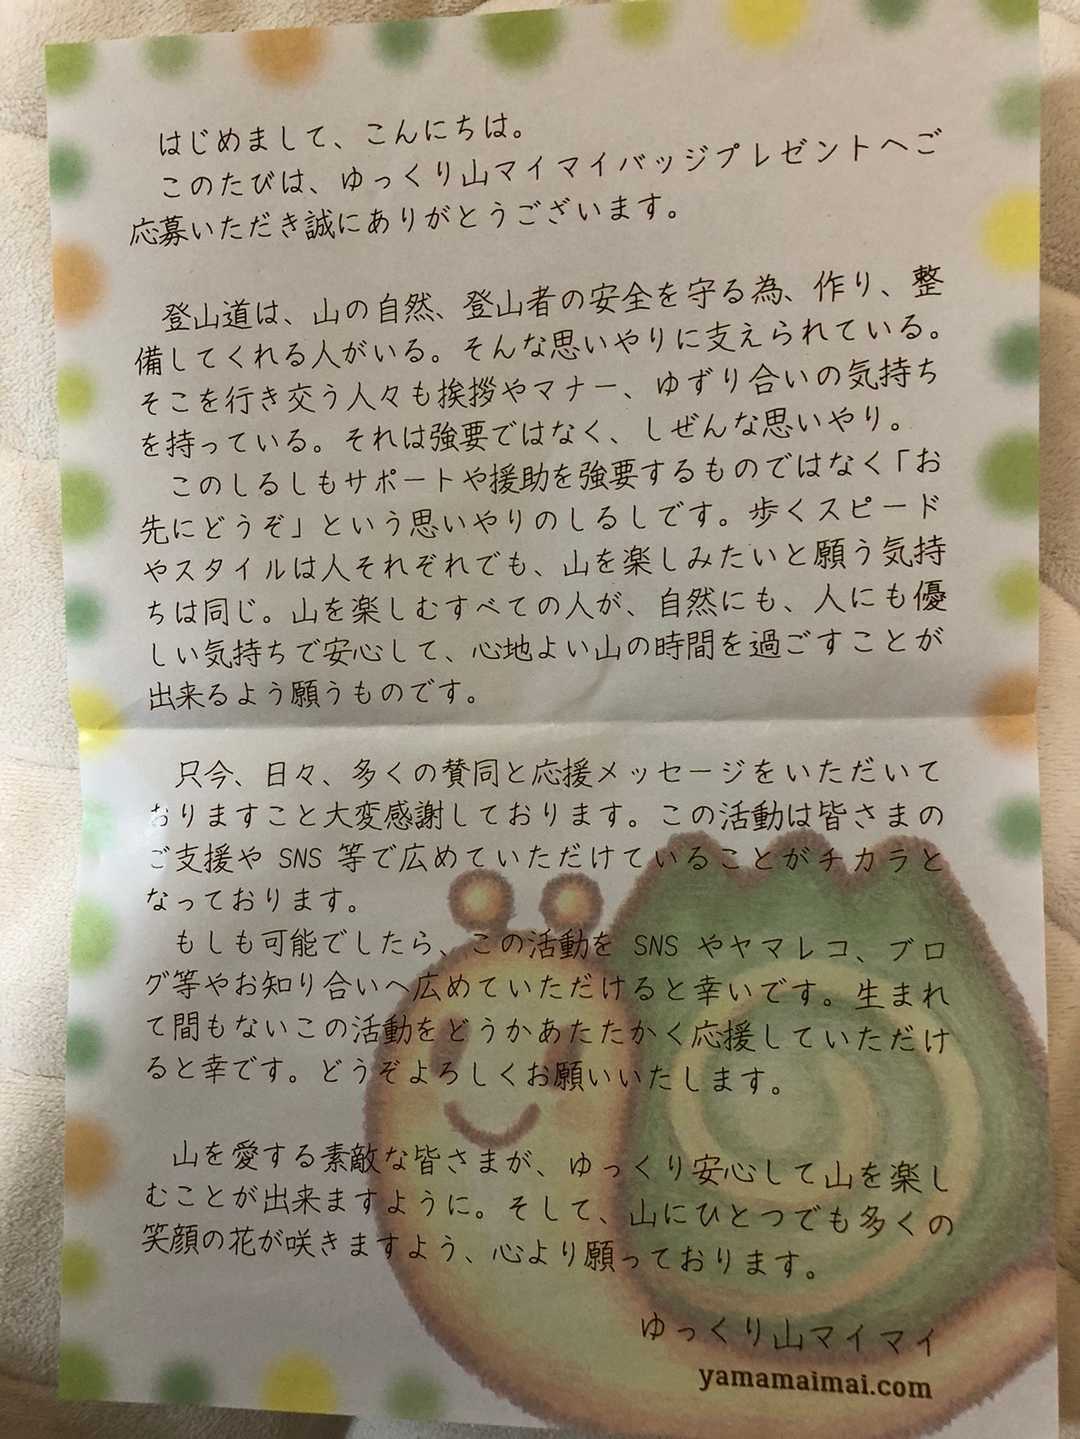 はじめまして、こんにちは。
このたびは、ゆっくり山マイマイバッジプレゼントへご
応募いただき誠にありがとうございます。
登山道は、山の自然、登山者の安全を守る為、作り、整
備してくれる人がいる。そんな思いやりに支えられている。
そこを行き交う人々も挨拶やマナー、ゆずり合いの気持ち
を持っている。それは強要ではなく、しぜんな思いやり。
このしるしもサポートや援助を強要するものではなく「お
先にどうぞ」という思いやりのしるしです。歩くスピード
やスタイルは人それぞれでも、山を楽しみたいと願う気持
ちは同じ。山を楽しむすべての人が、自然にも、人にも優
しい気持ちで安心して、心地よい山の時間を過ごすことが
出来るよう願うものです。
只今、日々、多くの賛同と応援メッセージをいただいて
おりますこと大変感謝しております。この活動は皆さまの
ご支援や SNS 等で広めていただけていることがチカラと
なっております。
もしも可能でしたら、この活動を SNS やヤマレコ、ブロ
グ等やお知り合いへ広めていただけると幸いです。生まれ
て間もないこの活動をどうかあたたかく応援していただけ
ると幸です。どうぞよろしくお願いいたします。
山を愛する素敵な皆さまが、ゆっくり安心して山を楽し
むことが出来ますように。そして、山にひとつでも多くの
笑顔の花が咲きますよう、心より願っております。
ゆっくり山マイマイ
yamamaimai.com